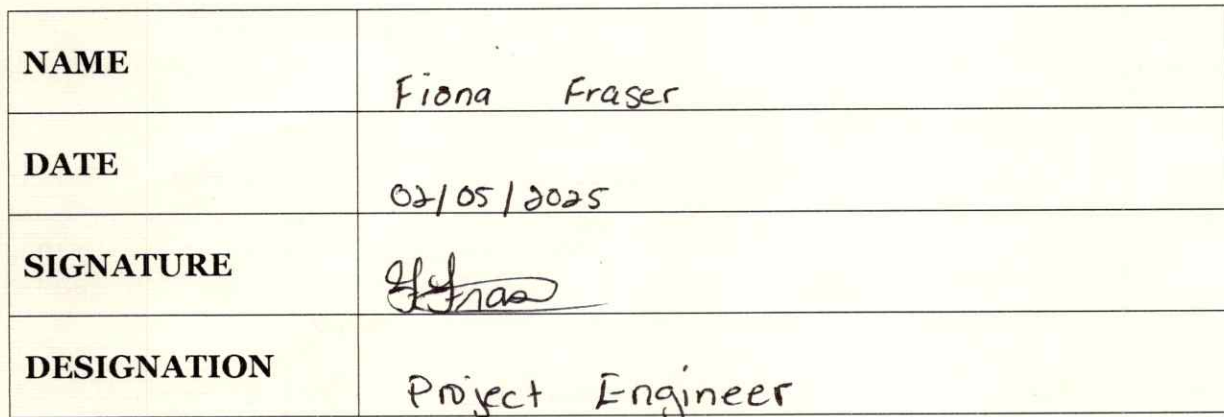 NAME Fiona Fraser
DATE 02/05/2025
SIGNATURE FFras
DESIGNATION Project Engineer